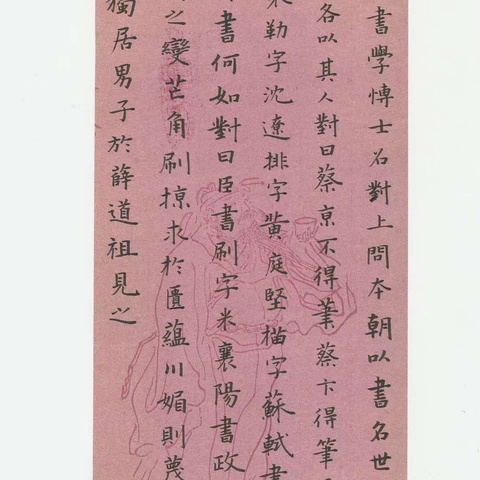 書學博士召對上問本朝以書名世
各以其人對曰蔡京不得筆蔡卞得筆
勒字沈遼排字黃庭堅描字蘇軾書
書何如對曰臣書刷字米襄陽書政
之變芒角刷掠求於匱蘊川媚則蔑
獨居男子於薛道祖見之